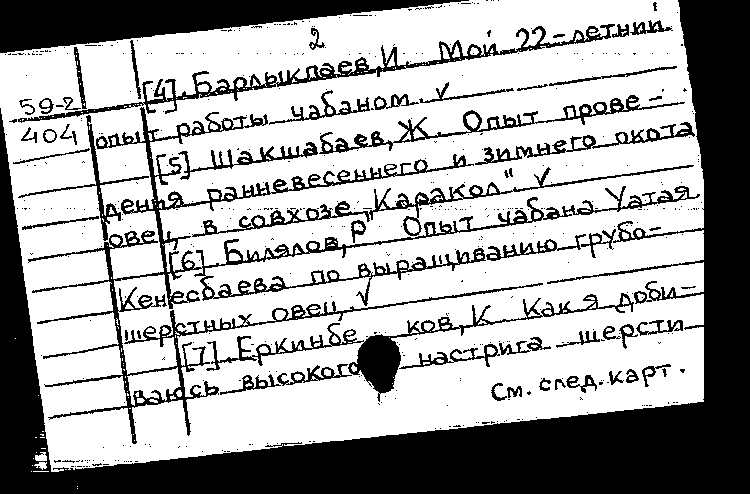 2
[4]. Барлыклаев, И. Мой 22-летний
59-2
404
опыт работы чабаном. ✓
[5] Шакшабаев, Ж. Опыт прове-
дения ранневесеннего и зимнего окота
овец в совхозе „Каракол". ✓
[6]. Билялов, Р Опыт чабана Уатая
Кенесбаева по выращиванию грубо-
шерстных овец. ✓
[7]. Еркинбеков, К Как я доби-
ваюсь высокого настрига шерсти
См. след. карт.